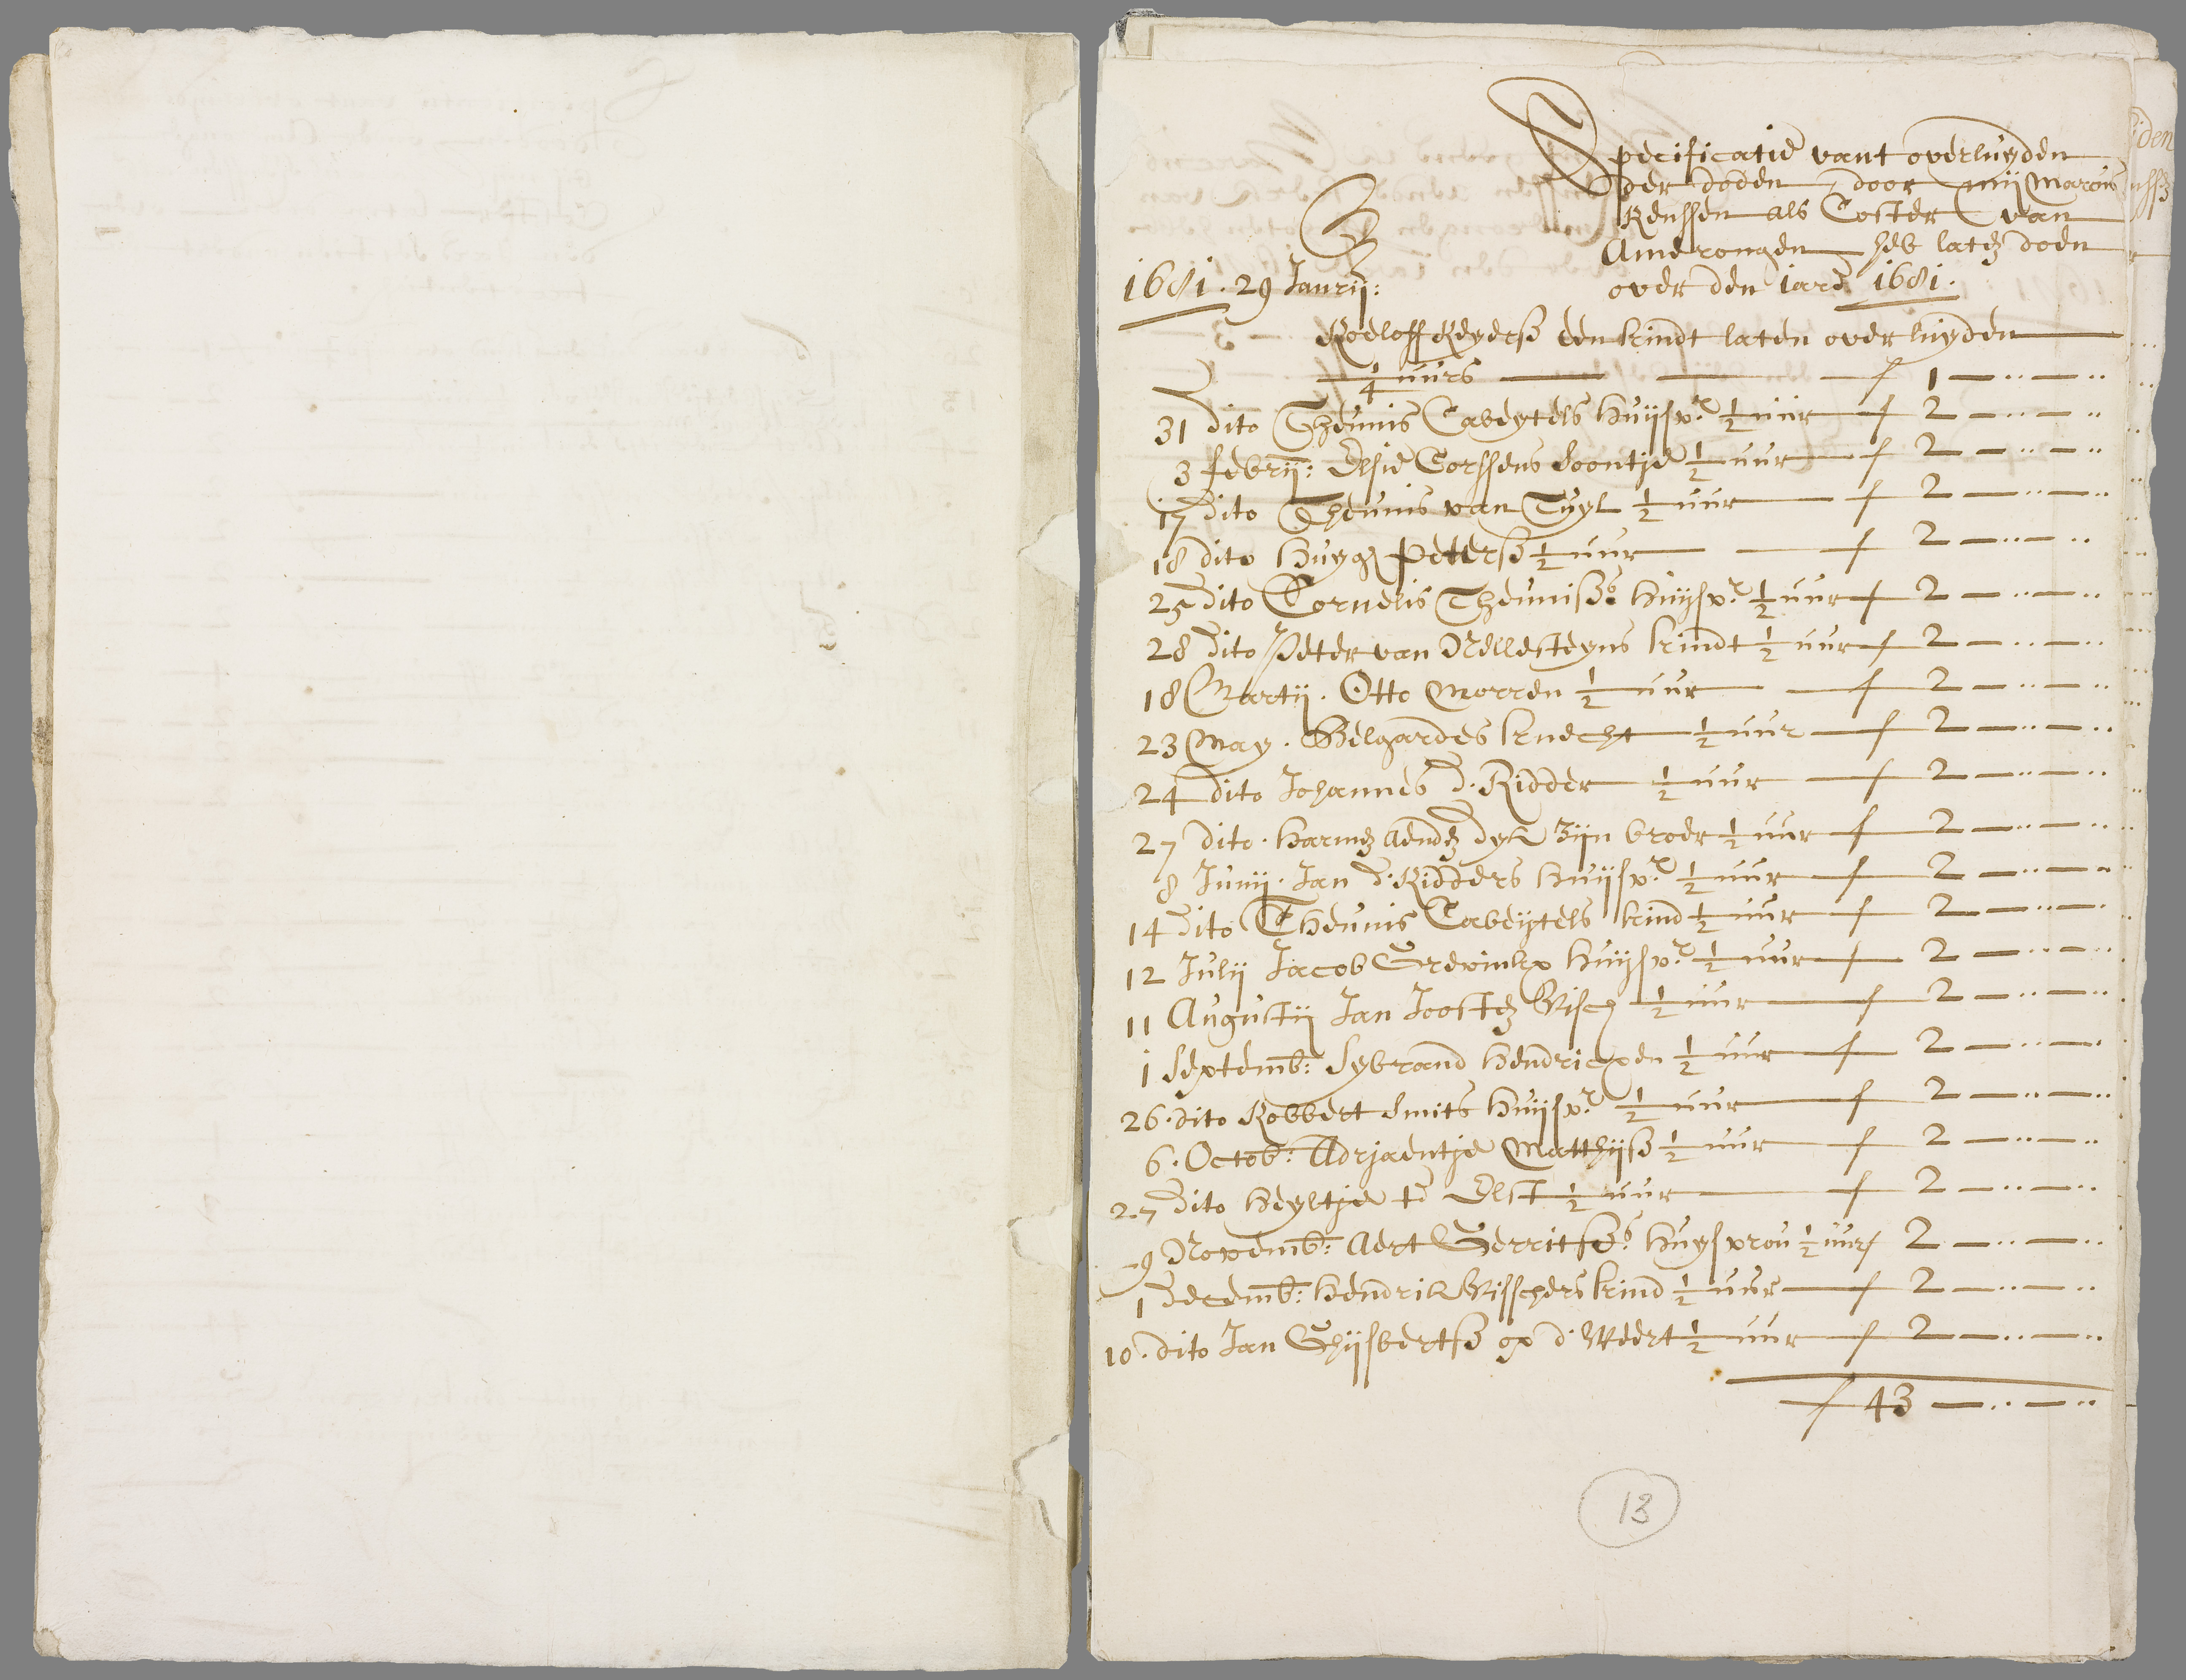 Specificatie vant overluyden
der doden door mij Marcus
Renssen als Coster van
Amerongen heb laten doen
1681. 29 Janrij:
over den iare 1681.
Roeloff Reyerse een kindt laten over luyden
1/4 uurs — f 1 — .. — ..
31 dito Theunis Cabeytels huijsvr. 1/2 uur f 2 — .. — ..
3 febrij: Elsie Corssens soontje 1/2 uur f 2 — .. — ..
17 dito Theunis van Tuyl 1/2 uur f 2 — .. — ..
18 dito Huygh Peterse 1/2 uur f 2 — .. — ..
25 dito Cornelis Theunisses huijsvr. 1/2 uur f 2 — .. — ..
28 dito Peter van Nellesteyns kindt 1/2 uur f 2 — .. — ..
18 Martij. Otto Morren 1/2 uur f 2 — .. — ..
23 May. Belgardes knecht 1/2 uur f 2 — .. — ..
24 dito Johannes d. Ridder 1/2 uur f 2 — .. — ..
27 dito. Harmen aenden dyk zijn broer 1/2 uur f 2 — .. — ..
8 Junij. Jan d. Ridders huijsvr. 1/2 uur f 2 — .. — ..
14 dito Theunis Cabeijtels kind 1/2 uur f 2 — .. — ..
12 Julij Jacob Grevinkx huijsvr. 1/2 uur f 2 — .. — ..
11 Augustij Jan Joosten Visch 1/2 uur f 2 — .. — ..
1 Septemb: Sybrand Hendricxen 1/2 uur f 2 — .. — ..
26. dito Robbert Smits huijsvr. 1/2 uur f 2 — .. — ..
6. Octob: Adrjaentje Matthijse 1/2 uur f 2 — .. — ..
27 dito Heyltje te Elst 1/2 uur f 2 — .. — ..
9 Novemb: Aert Gerritses. huysvrou 1/2 uur f 2 — .. — ..
1 decemb: Hendrik Visschers kind 1/2 uur f 2 — .. — ..
10. dito Jan Ghijsbertse op d. Weert 1/2 uur f 2 — .. — ..
f 43 — .. — ..
13